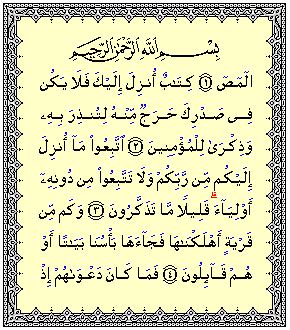 بِسْمِ ٱللَّهِ ٱلرَّحْمَٰنِ ٱلرَّحِيمِ
الٓمٓصٓ ١ كِتَٰبٌ أُنزِلَ إِلَيْكَ فَلَا يَكُن
فِى صَدْرِكَ حَرَجٌ مِّنْهُ لِتُنذِرَ بِهِۦ
وَذِكْرَىٰ لِلْمُؤْمِنِينَ ٢ ٱتَّبِعُوا۟ مَآ أُنزِلَ
إِلَيْكُم مِّن رَّبِّكُمْ وَلَا تَتَّبِعُوا۟ مِن دُونِهِۦٓ
أَوْلِيَآءَ ۗ قَلِيلًا مَّا تَذَكَّرُونَ ٣ وَكَم مِّن
قَرْيَةٍ أَهْلَكْنَٰهَا فَجَآءَهَا بَأْسُنَا بَيَٰتًا أَوْ
هُمْ قَآئِلُونَ ٤ فَمَا كَانَ دَعْوَىٰهُمْ إِذْ